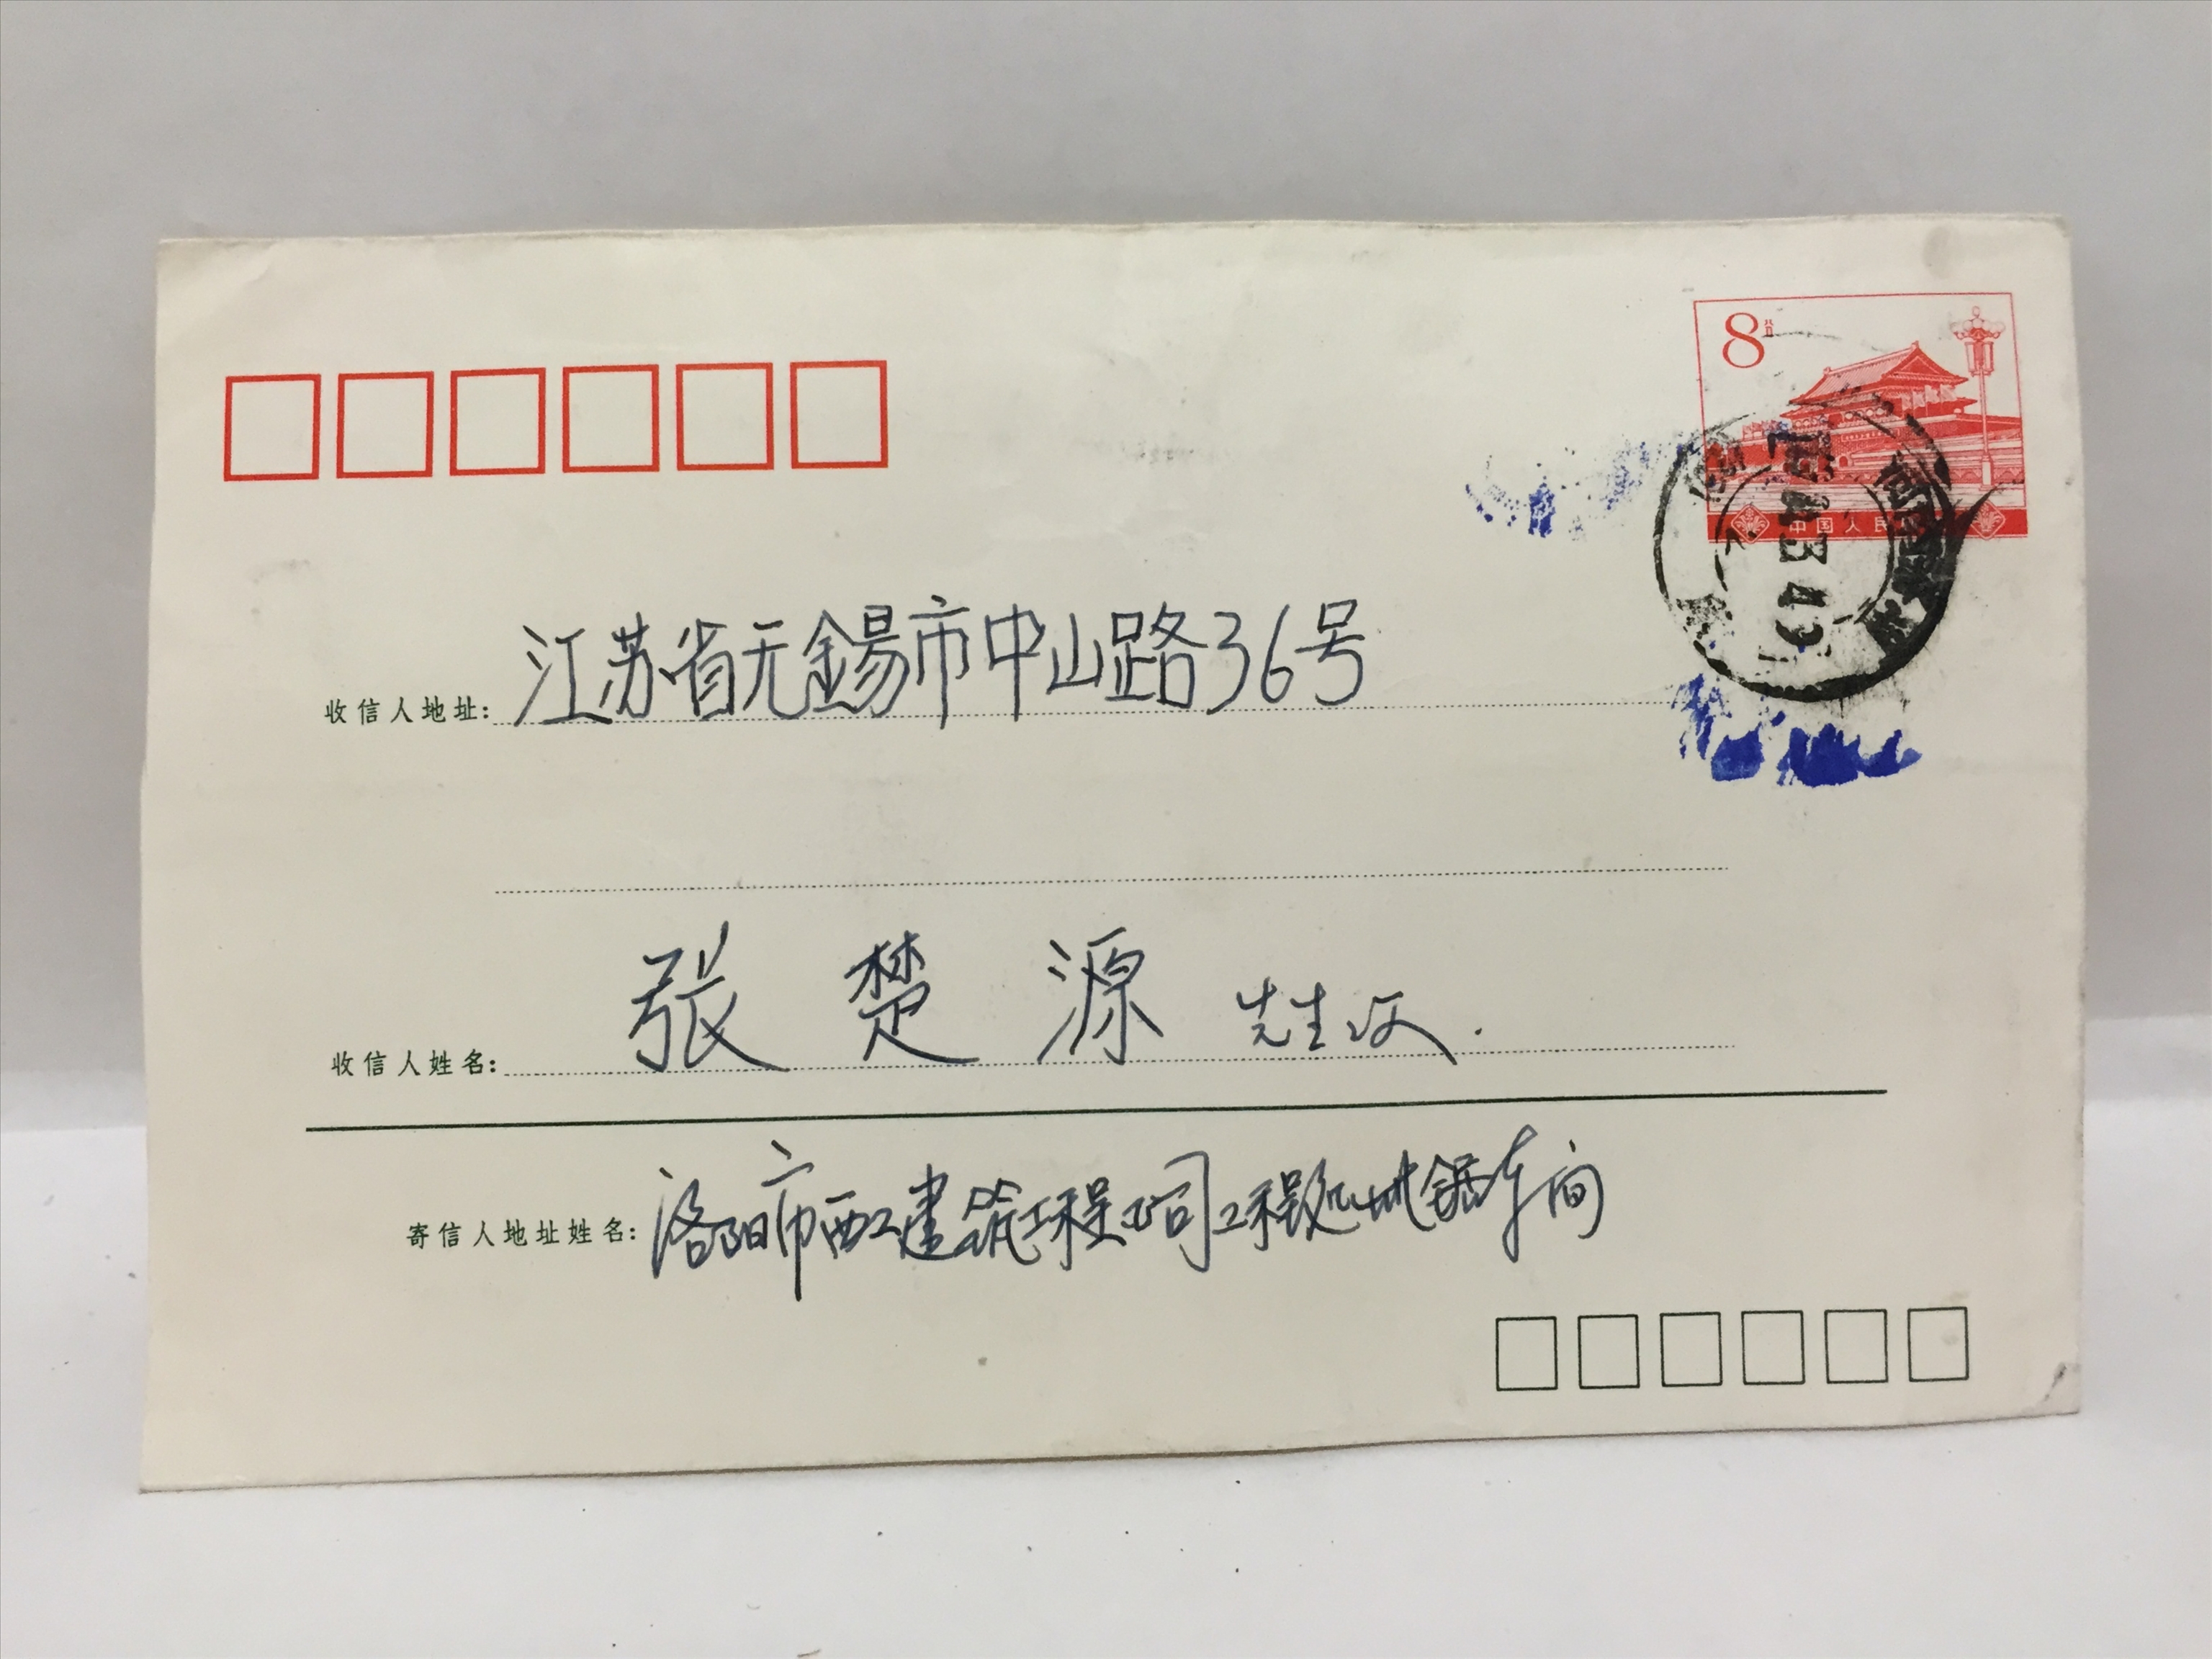 8分
中国人民
收信人地址: 江苏省无錫市中山路36号
收信人姓名: 张楚源 先生收.
寄信人地址姓名: 洛阳市西工建筑工程公司工程处地锯车间